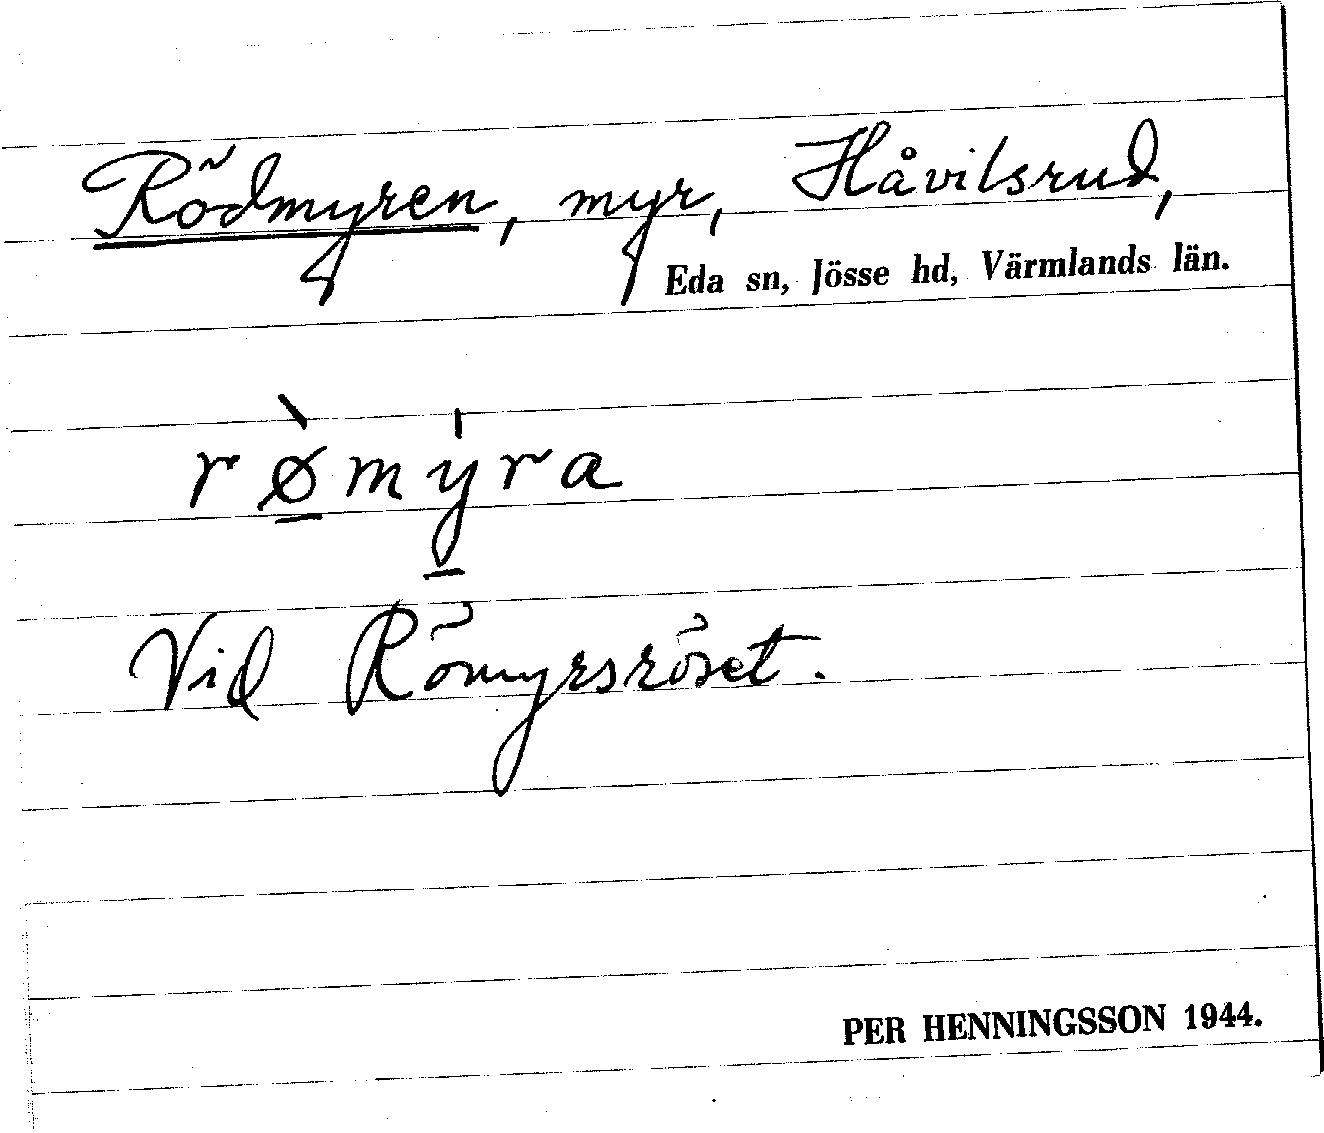 Rödmyren, myr, Håvilsrud,
Eda sn, Jösse hd, Värmlands län.
rø̱̀mý̱ra
Vid Römyrsröset.
PER HENNINGSSON 1944.